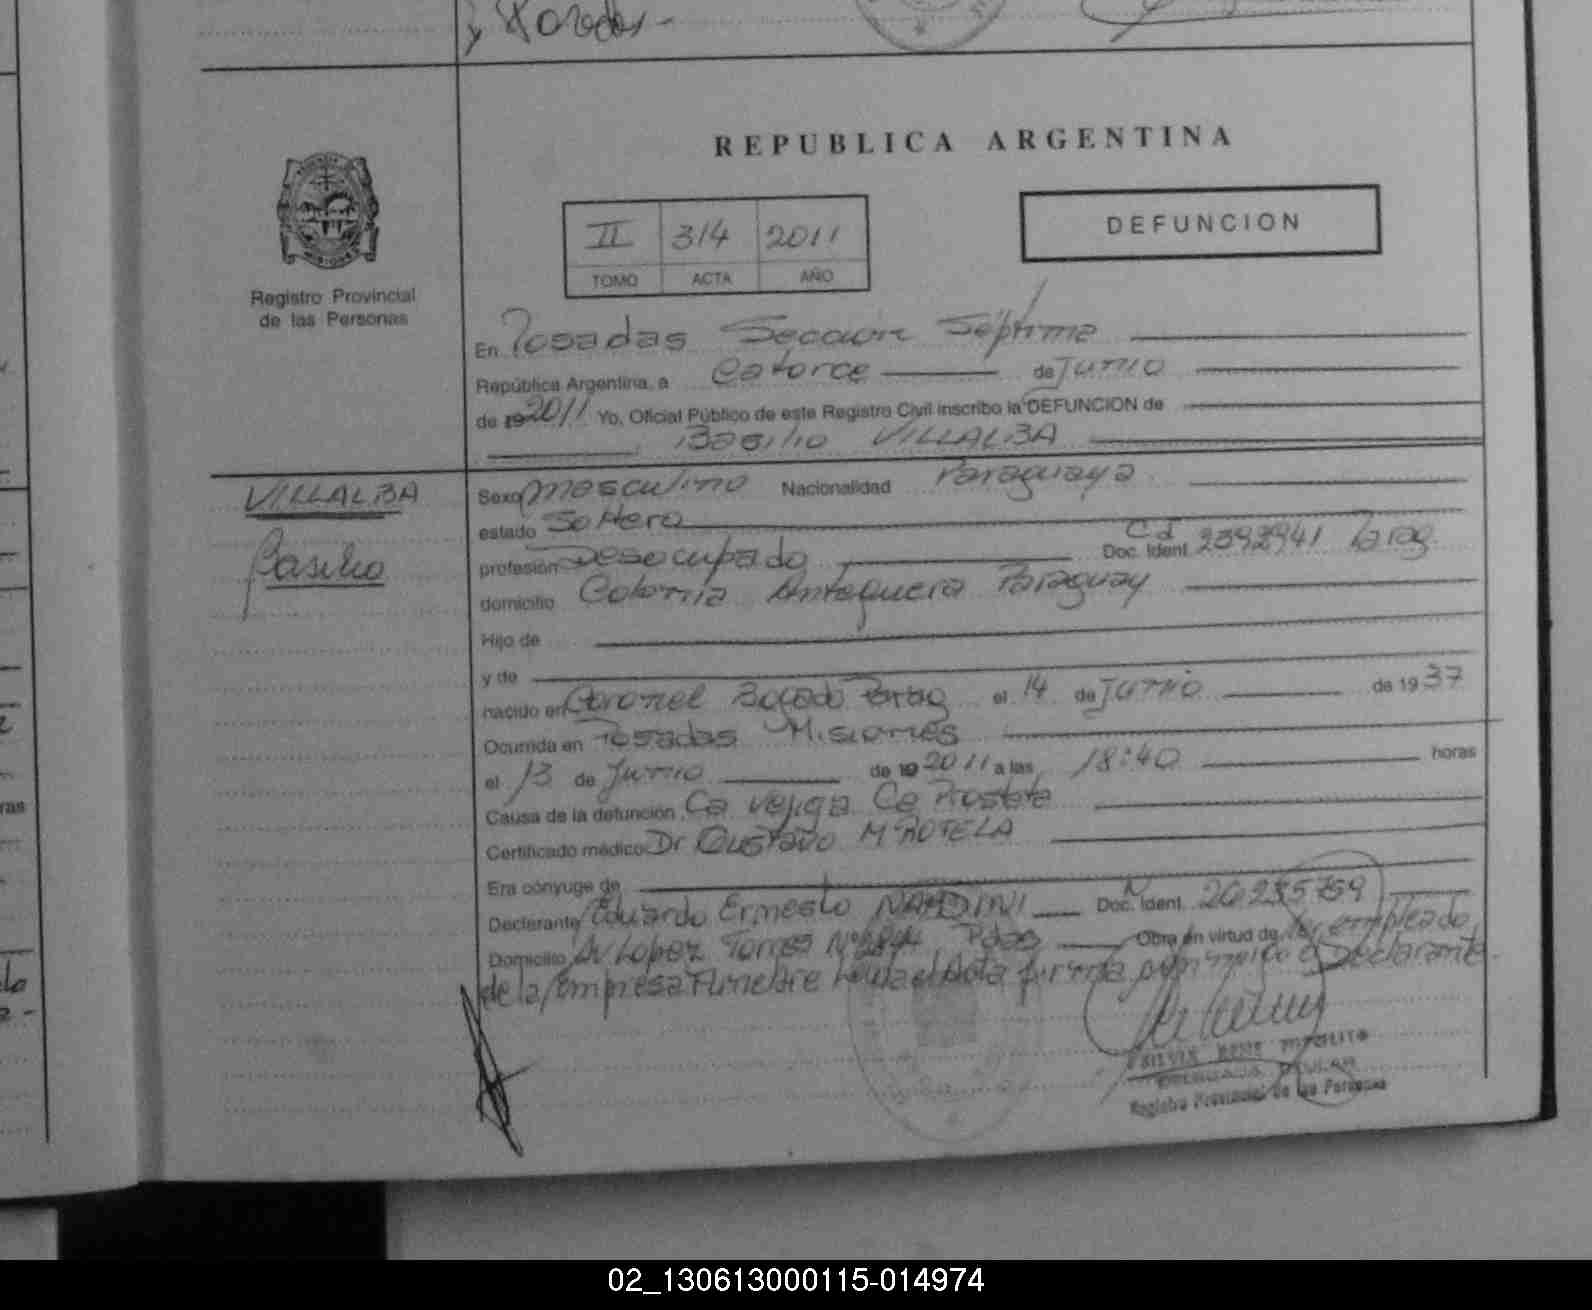 y Posadas -
REPUBLICA ARGENTINA
II 314 2011
TOMO ACTA AÑO
DEFUNCION
MISIONES
Registro Provincial
de las Personas
En Posadas Sección Séptima
República Argentina, a Catorce de Junio
de 19 2011 Yo, Oficial Público de este Registro Civil inscribo la DEFUNCION de
Basilio VILLALBA
VILLALBA
Basilio
Sexo masculino Nacionalidad Paraguaya
estado Soltero
profesión Desocupado Cd Doc. Ident. 2392941 Parag
domicilio Colonia Antequera Paraguay
Hijo de
y de
nacido en Coronel Bogado Parag el 14 de Junio de 1937
Ocurrida en Posadas Misiones
el 13 de Junio de 19 2011 a las 18:40 horas
Causa de la defunción Ca Vejiga Ca Prostata
Certificado médico Dr Gustavo M ROTELA
Era cónyuge de
Declarante Eduardo Ernesto NARDINI Doc. N Ident. 20.235759
Domicilio Av Lopez Torres Nº Pdas Obra en virtud de ser empleado
de la Empresa Funebre el Acta firma Declarante.
RENE HIPOLITO
Registro Provincial de las Personas
02_130613000115-014974